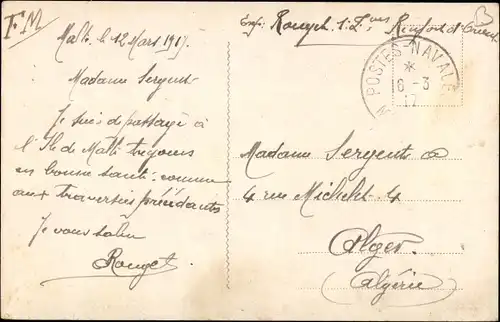 FM
Malte le 12 Mars 1917.
Madame Sergent
Je suis de passage à
l'Ile de Malte toujours
en bonne santé comme
aux traversées précédantes
Je vous salue
Rouget
Exp: Rouget
POSTES NAVALE
*
8-3
17
Madame Sergent
4 rue Michelet 4
Alger
(Algérie)